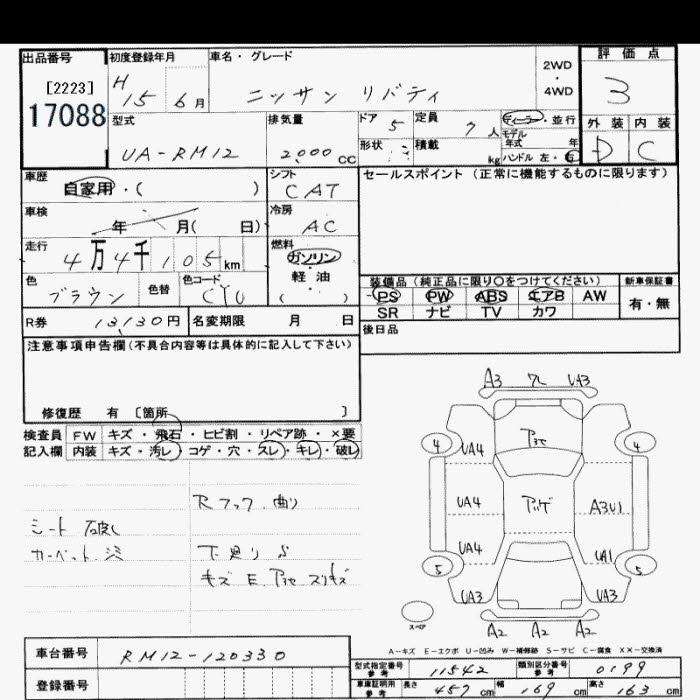 出品番号 初度登録年月 車名・グレード 評価点
[2223] H 15 6月 ニッサン リバティ 2WD・4WD 3
17088
型式 排気量 ドア 5 定員 7人 ディーラー・並行 外装 内装
モデル年式 年
UA-RM12 2,000CC 形状 積載 kg ハンドル 左・右 D C
車歴 シフト セールスポイント (正常に機能するものに限ります)
自家用・( ) CAT
車検 冷房
年 月( 日) AC
走行 燃料
4万4千105km ガソリン
軽油
( )
色 色替 色コード 装備品(純正品に限り○をつけてください) 新車保証書
ブラウン PS PW ABS エアB AW 有・無
SR ナビ TV カワ
R券 13,130円 名変期限 月 日 後日品
注意事項申告欄(不具合内容等は具体的に記入して下さい)
修復歴 有 〔箇所 〕
検査員 FW キズ・飛石・ヒビ割・リペア跡・×要
記入欄 内装 キズ・汚レ・コゲ・穴・スレ・キレ・破レ
A3 UA3
4 4
UA4
UA4 A3U1
UA4 UA1
5 5
UA3 UA3
A2 A2 A2
スペア
Rフック 曲り
シート 破レ
カーペット 下廻り S
キズ E
A-キズ E-エクボ U-凹み W-補修跡 S-サビ C-腐食 XX-交換済
車台番号 RM12-120330
型式指定番号 参考 11542 類別区分番号 参考 0199
登録番号
車庫証明用 参考 長さ 457cm 幅 169cm 高さ 163cm